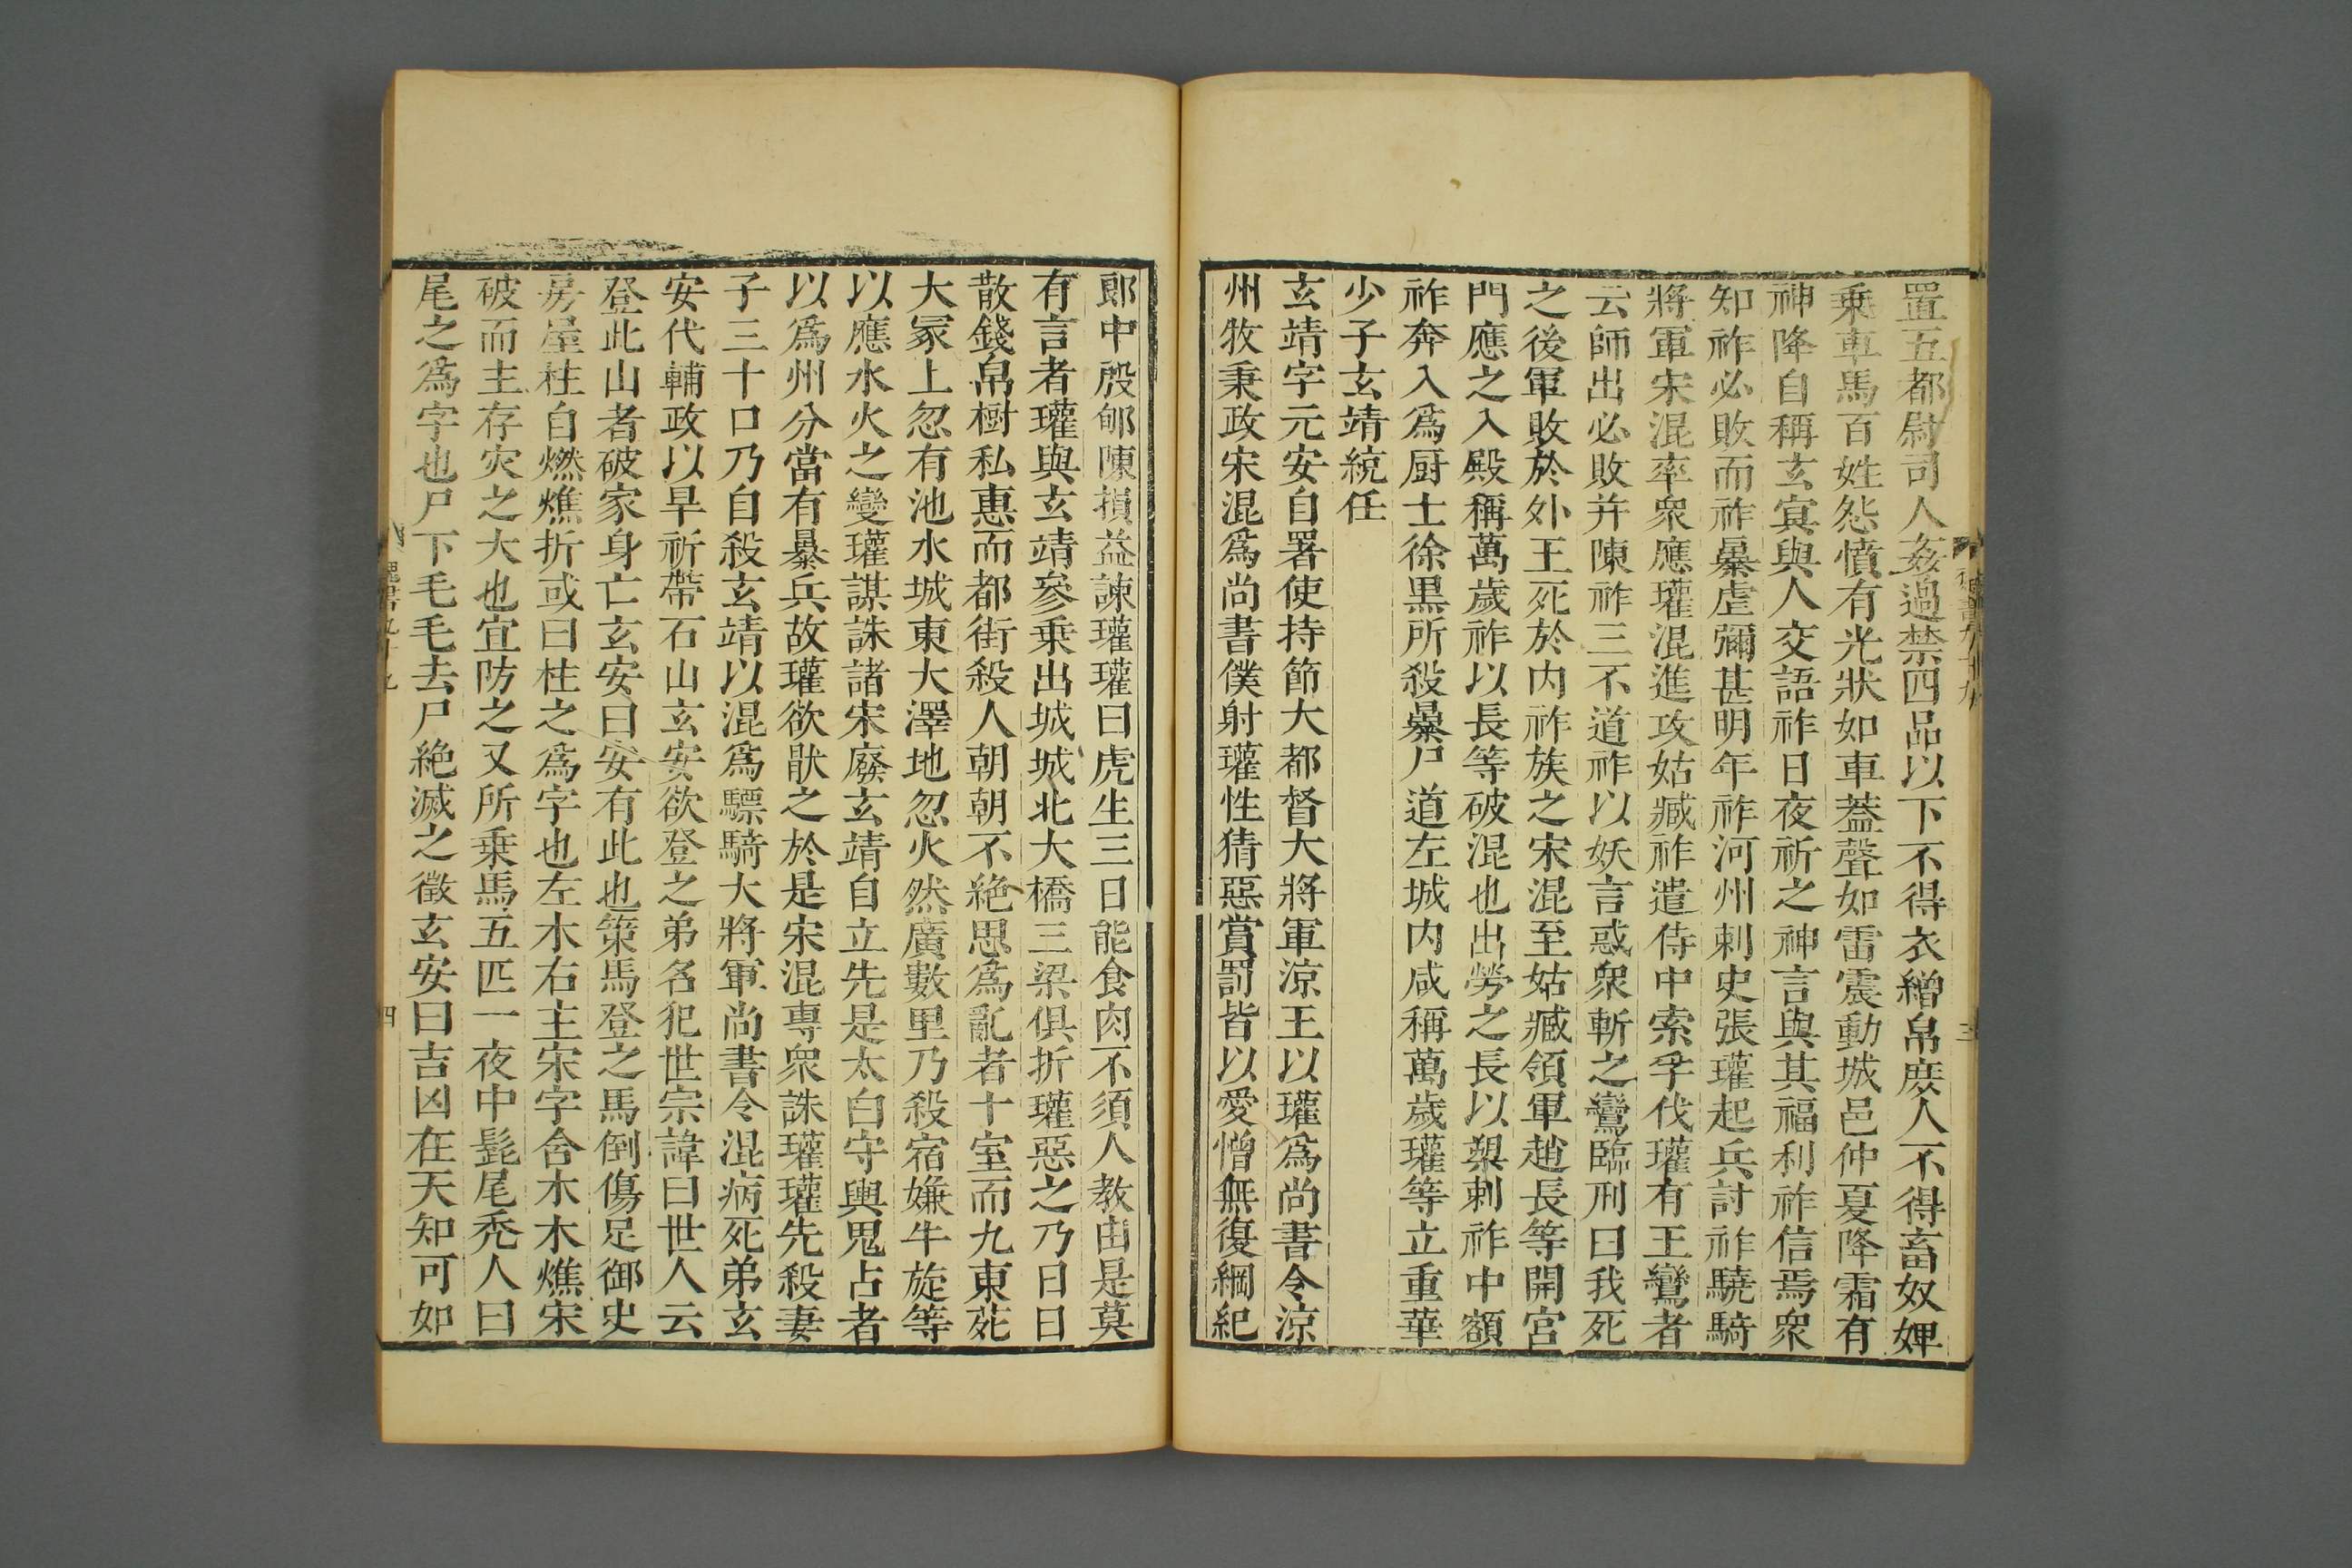 置五都尉司人姦過禁四品以下不得衣繒帛庻人不得畜奴婢
乗車馬百姓怨憤有光狀如車葢聲如雷震動城邑仲夏降霜有
神降自稱玄㝠與人交語祚日夜祈之神言與其福利祚信焉衆
知祚必敗而祚㬥虐彌甚明年祚河州刺史張瓘起兵討祚驍騎
將軍宋混率衆應瓘混進攻姑臧祚遣侍中索孚伐瓘有王鸞者
云師出必敗并陳祚三不道祚以妖言惑衆斬之鸞臨刑曰我死
之後軍敗於外王死於内祚族之宋混至姑臧領軍趙長等開宫
門應之入殿稱萬歲祚以長等破混也出勞之長以槊刺祚中額
祚奔入爲厨士徐黒所殺㬥尸道左城内咸稱萬歲瓘等立重華
少子玄靖統任
玄靖字元安自署使持節大都督大將軍涼王以瓘爲尚書令涼
州牧秉政宋混爲尚書僕射瓘性猜惡賞罰皆以愛憎無復綱紀
郎中殷郇陳損益諫瓘瓘曰虎生三日能食肉不須人教由是莫
有言者瓘與玄靖參乗出城城北大橋三梁俱折瓘惡之乃日日
散錢帛樹私惠而都街殺人朝朝不絶思爲亂者十室而九東苑
大冡上忽有池水城東大澤地忽火然廣數里乃殺宿嫌牛旋等
以應水火之變瓘謀誅諸宋廢玄靖自立先是太白守輿鬼占者
以爲州分當有㬥兵故瓘欲猒之於是宋混専衆誅瓘瓘先殺妻
子三十口乃自殺玄靖以混爲驃騎大將軍尚書令混病死弟玄
安代輔政以旱祈帶石山玄安欲登之弟名犯世宗諱曰世人云
登此山者破家身亡玄安曰安有此也策馬登之馬倒傷足御史
房屋柱自燃燋折或曰柱之爲字也左木右主宋字含木木燋宋
破而主存灾之大也宜防之又所乗馬五匹一夜中髭尾秃人曰
尾之爲字也尸下毛毛去尸絶滅之徵玄安曰吉凶在天知可如
魏書九十九
四
三